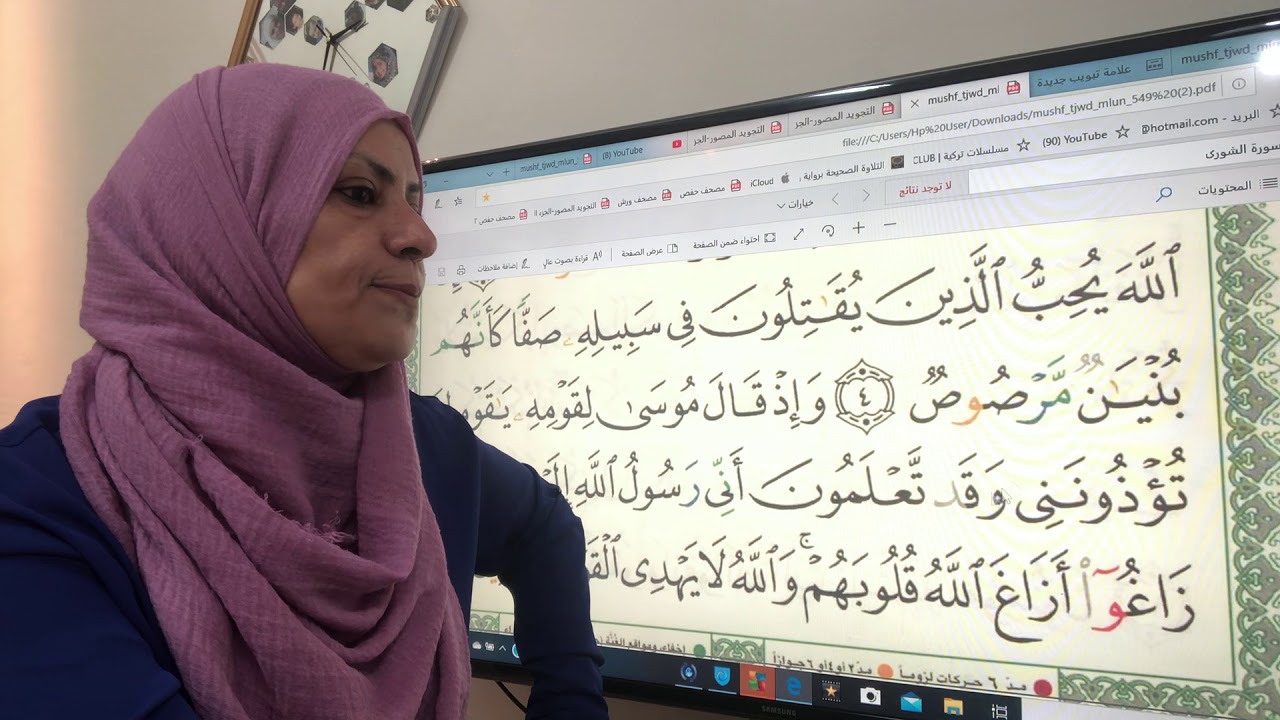 mushf_tjwd_ml
علامة تبويب جديدة
mushf_tjwd_ml
التجويد المصور-الجز
التجويد المصور-الجز
(8) YouTube
mushf_tjwd_mlun_
file:///C:/Users/Hp%20User/Downloads/mushf_tjwd_mlun_549%20(2).pdf
البريد - hotmail.com
(90) YouTube
مسلسلات تركية | CLUB
التلاوة الصحيحة برواية
iCloud
مصحف حفص
مصحف ورش
التجويد المصور-الجزء
مصحف حفص
سورة الشورى
لا توجد نتائج
خيارات
المحتويات
احتواء ضمن الصفحة
عرض الصفحة
قراءة بصوت عالي
إضافة ملاحظات
ٱللَّهَ يُحِبُّ ٱلَّذِينَ يُقَٰتِلُونَ فِى سَبِيلِهِۦ صَفًّا كَأَنَّهُم
بُنْيَٰنٌ مَّرْصُوصٌ ٤ وَإِذْ قَالَ مُوسَىٰ لِقَوْمِهِۦ يَٰقَوْمِ
تُؤْذُونَنِى وَقَد تَّعْلَمُونَ أَنِّى رَسُولُ ٱللَّهِ
زَاغُوٓا۟ أَزَاغَ ٱللَّهُ قُلُوبَهُمْ ۚ وَٱللَّهُ لَا يَهْدِى
مدّ ٦ حركات لزوماً
مدّ ٢ أو ٤ أو ٦ جوازاً
إخفاء ومواقع الغُنَّة
SAMSUNG